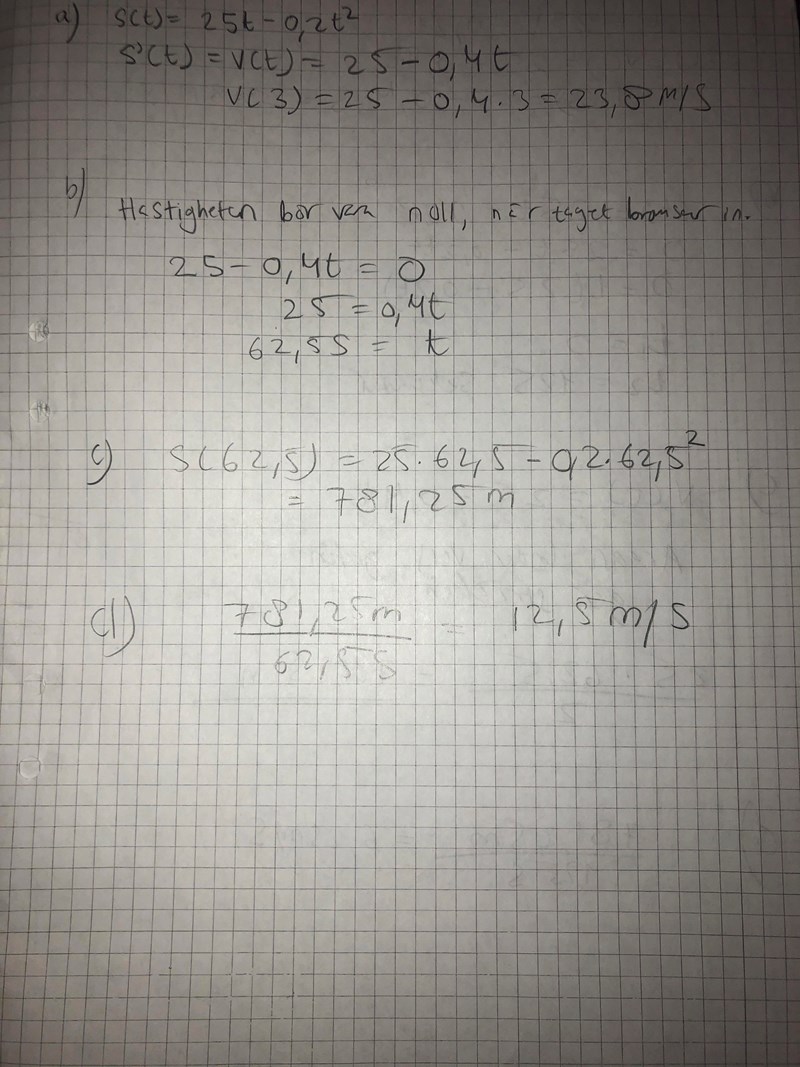 a) s(t) = 25t - 0,2t²
s'(t) = v(t) = 25 - 0,4t
v(3) = 25 - 0,4·3 = 23,8 m/s
b)
Hastigheten bör vara noll, när tåget bromsar in.
25 - 0,4t = 0
25 = 0,4t
62,5s = t
c) s(62,5) = 25·62,5 - 0,2·62,5²
= 781,25 m
d) 781,25m / 62,5 s = 12,5 m/s